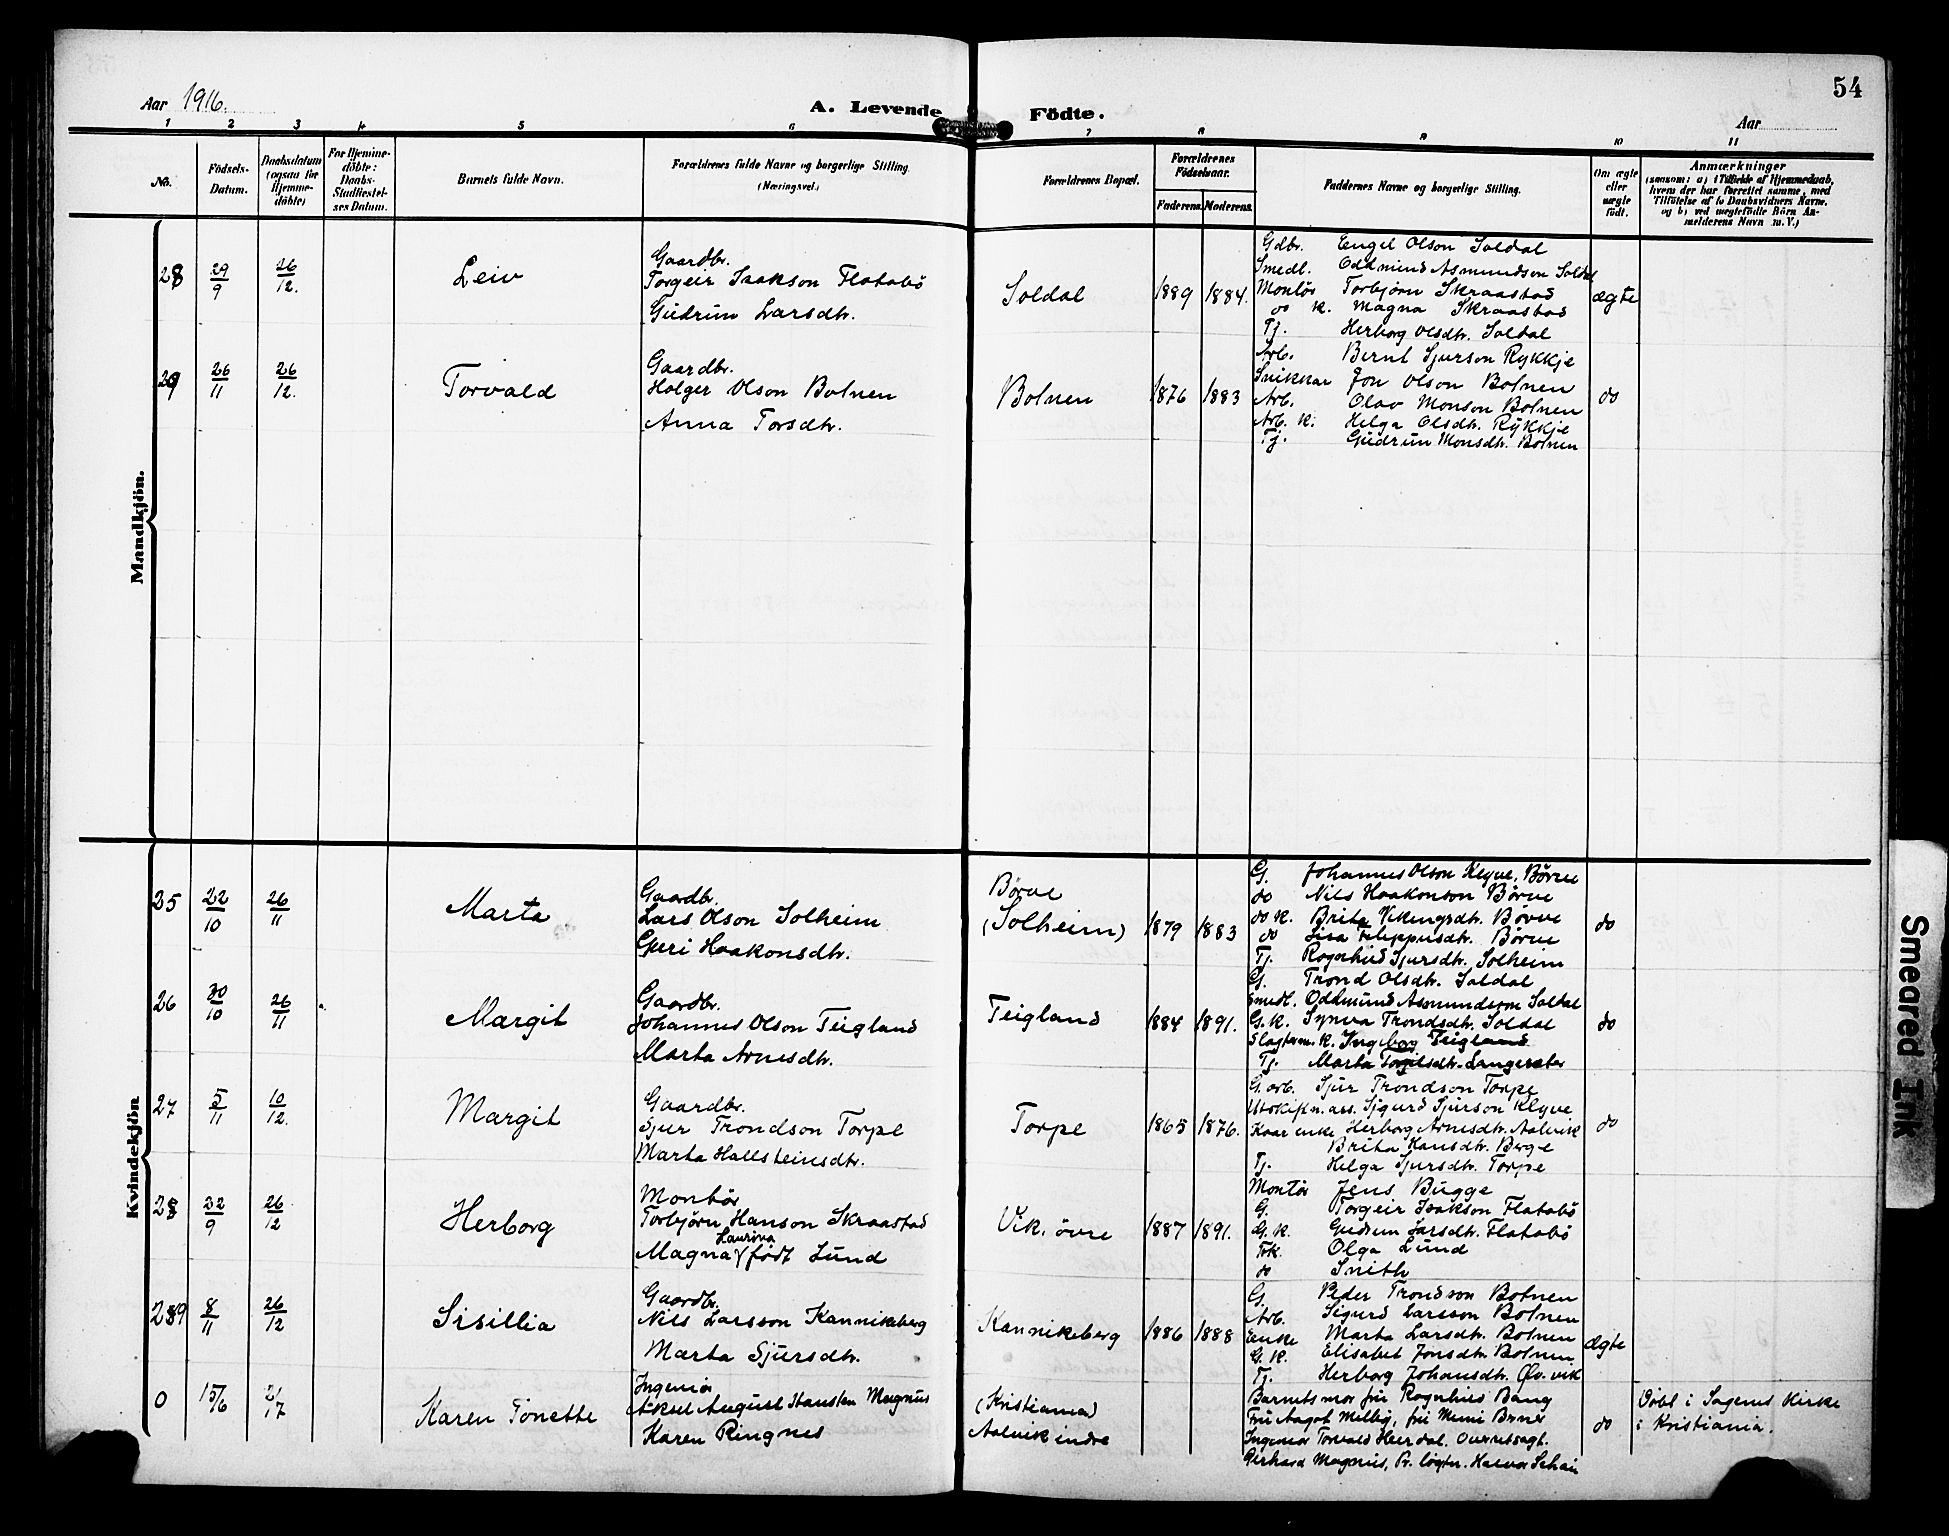 54
Aar 1916.
A. Levende Födte.
Aar
1 2 3 4 5 6 7 8 9 10 11
No.
Födsels-
Datum.
Daabsdatum
(ogsaa for
Hjemme-
döbte)
For Hjemme-
döbte:
Daabs-
Stadfæstel-
ses Datum.
Barnets fulde Navn.
Forældrenes fulde Navne og borgerlige Stilling
(Næringsvei.)
Forældrenes Bopæl.
Forældrenes
Födselsaar.
Faderens. Moderens.
Faddernes Navne og borgerlige Stilling.
Om ægte
eller
uægte
födt.
Anmærkninger
(saasom: a) i Tilfælde af Hjemmedaab,
hvem der har forrettet samme, med
Tilföielse af to Daabsvidners Navne.
og b) ved uægtefödte Börn An-
melderens Navn m. V.)
Mandkjön.
28 29/9 26/12. Leiv
Gaardbr.
Torgeir Isakson Flatabö
Gudrun Larsdtr.
Soldal 1889 1884.
Gdbr. Engel Olson Soldal
Smedl. Oddmund Asmundson Soldal
Montör Torbjørn Skraastad
do k. Magna Skraastad
Tj. Herborg Olsdtr. Soldal
ægte
29 26/11 26/12. Torvald
Gaardbr.
Holger Olson Botnen
Anna Torsdtr.
Botnen 1876 1883
Arb. Bernt Sjurson Rykkje
Snikkar Jon Olson Botnen
Arb. Olav Monson Botnen
Arb. k. Helga Olsdtr. Rykkje
Tj. Gudrun Monsdtr. Botnen
do
Kvindekjön
25 22/10 26/11 Marta
Gaardbr.
Lars Olson Solheim
Guri Haakonsdtr.
Börve
(Solheim) 1879 1883
G. Johannes Olson Klyve, Børve
do Nils Haakonson Børve
do k. Brita Vikingsdtr. Børve
do Lisa Filippusdtr. Børve
Tj. Ragnhild Sjursdtr. Solheim
do
26 30/10 26/11 Margit
Gaardbr.
Johannes Olson Teigland
Marta Arnesdtr.
Teigland 1884 1891.
G. Trond Olsdtr. Soldal
Smedl. Oddmund Asmundson Soldal
G. k. Synva Trondsdtr. Soldal
k. Ingeborg Teigland
Tj. Marta Langesæter
do
27 5/11 10/12. Margit
Gaardbr.
Sjur Trondson Torpe
Marta Hallsteinsdtr.
Torpe 1865 1876.
G. arb. Sjur Trondson Torpe
Sigurd Sjurson Klyve
Kaar enke Herborg Arnesdtr. Aalvik
Brita Hansdtr. Berge
Tj. Helga Sjursdtr. Torpe
do
28 22/9 26/12 Herborg
Montör
Torbjørn Hanson Skraastad
Laurina
Magna født Lund
Vik, övre 1887 1891.
Montör Jens Bugge
G. Torgeir Isakson Flatabö
G. k. Gudrun Larsdtr. Flatabö
Frk. Olga Lund
do Smith
29 8/11 26/12 Sisillia
Gaardbr.
Nils Larsson Kannikeberg
Marta Sjursdtr.
Kannikeberg 1886 1888
G. Peder Trondson Botnen
Arb. Sigurd Larsson Botnen
Enke Marta Larsdtr. Botnen
G. K. Elisabet Jonsdtr Botnen
Tj. Herborg Johansdtr. Øv. vik
ægte
0 15/6 2/7 Karen Tonette
Ingeniör
Aksel August Hansten Magnus
Karen Ringnes
(Kristiania)
Aalvik indre
Barnets mor fru Ragnhild Bang
Fru Aagot fru Mimi
Ingeniør Torvald Heerdal.
Gerhard Magnus,
do
Döbt i Sagenes Kirke
i Kristiania.
Smeared Ink